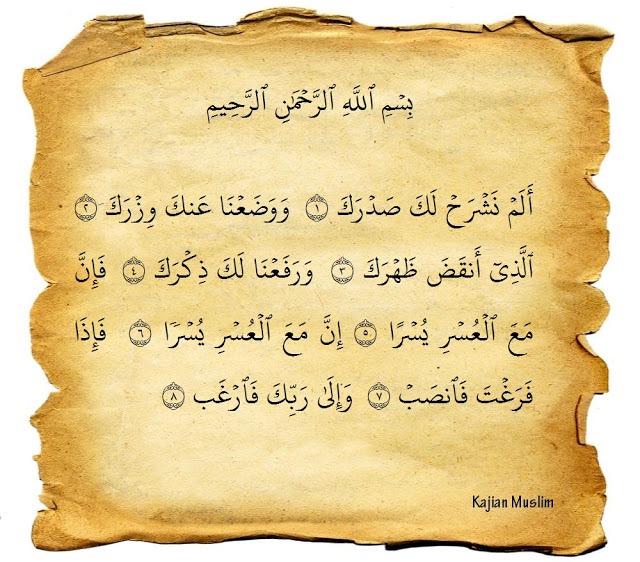 بِسْمِ ٱللَّهِ ٱلرَّحْمَٰنِ ٱلرَّحِيمِ
أَلَمْ نَشْرَحْ لَكَ صَدْرَكَ ١ وَوَضَعْنَا عَنكَ وِزْرَكَ ٢
ٱلَّذِىٓ أَنقَضَ ظَهْرَكَ ٣ وَرَفَعْنَا لَكَ ذِكْرَكَ ٤ فَإِنَّ
مَعَ ٱلْعُسْرِ يُسْرًا ٥ إِنَّ مَعَ ٱلْعُسْرِ يُسْرًا ٦ فَإِذَا
فَرَغْتَ فَٱنصَبْ ٧ وَإِلَىٰ رَبِّكَ فَٱرْغَب ٨
Kajian Muslim